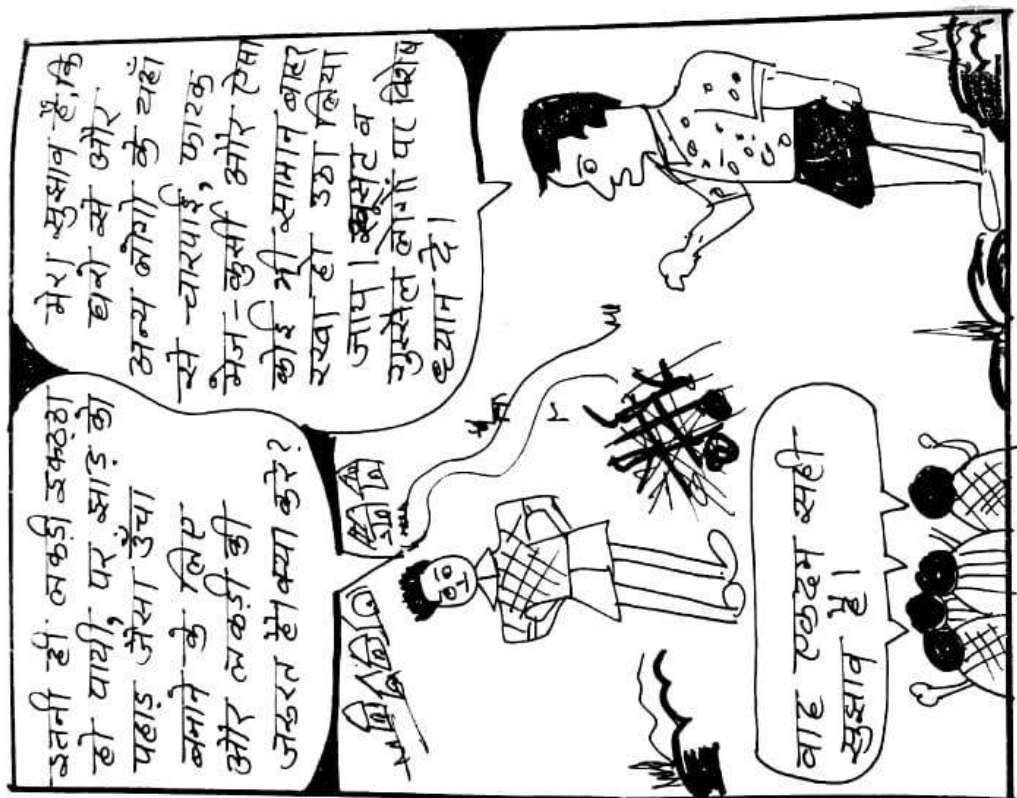 इतनी ही लकड़ी इकठ्ठा
हो पायी, पर झाड़ के
पहाड़ जैसा ऊँचा
बनाने के लिए
और लकड़ी की
जरुरत है। क्या करे?
मेरा सुझाव है, कि
घरो से और
अन्य लोगो के यहाँ
से चारपाई, फाटक
मेज-कुर्सी और ऐसा
कोई भी सामान बाहर
रखा हो उठा लिया
जाय। खूसट व
गुस्सैल लोगों पर विशेष
ध्यान दे।
वाह एकदम सही
सुझाव है।